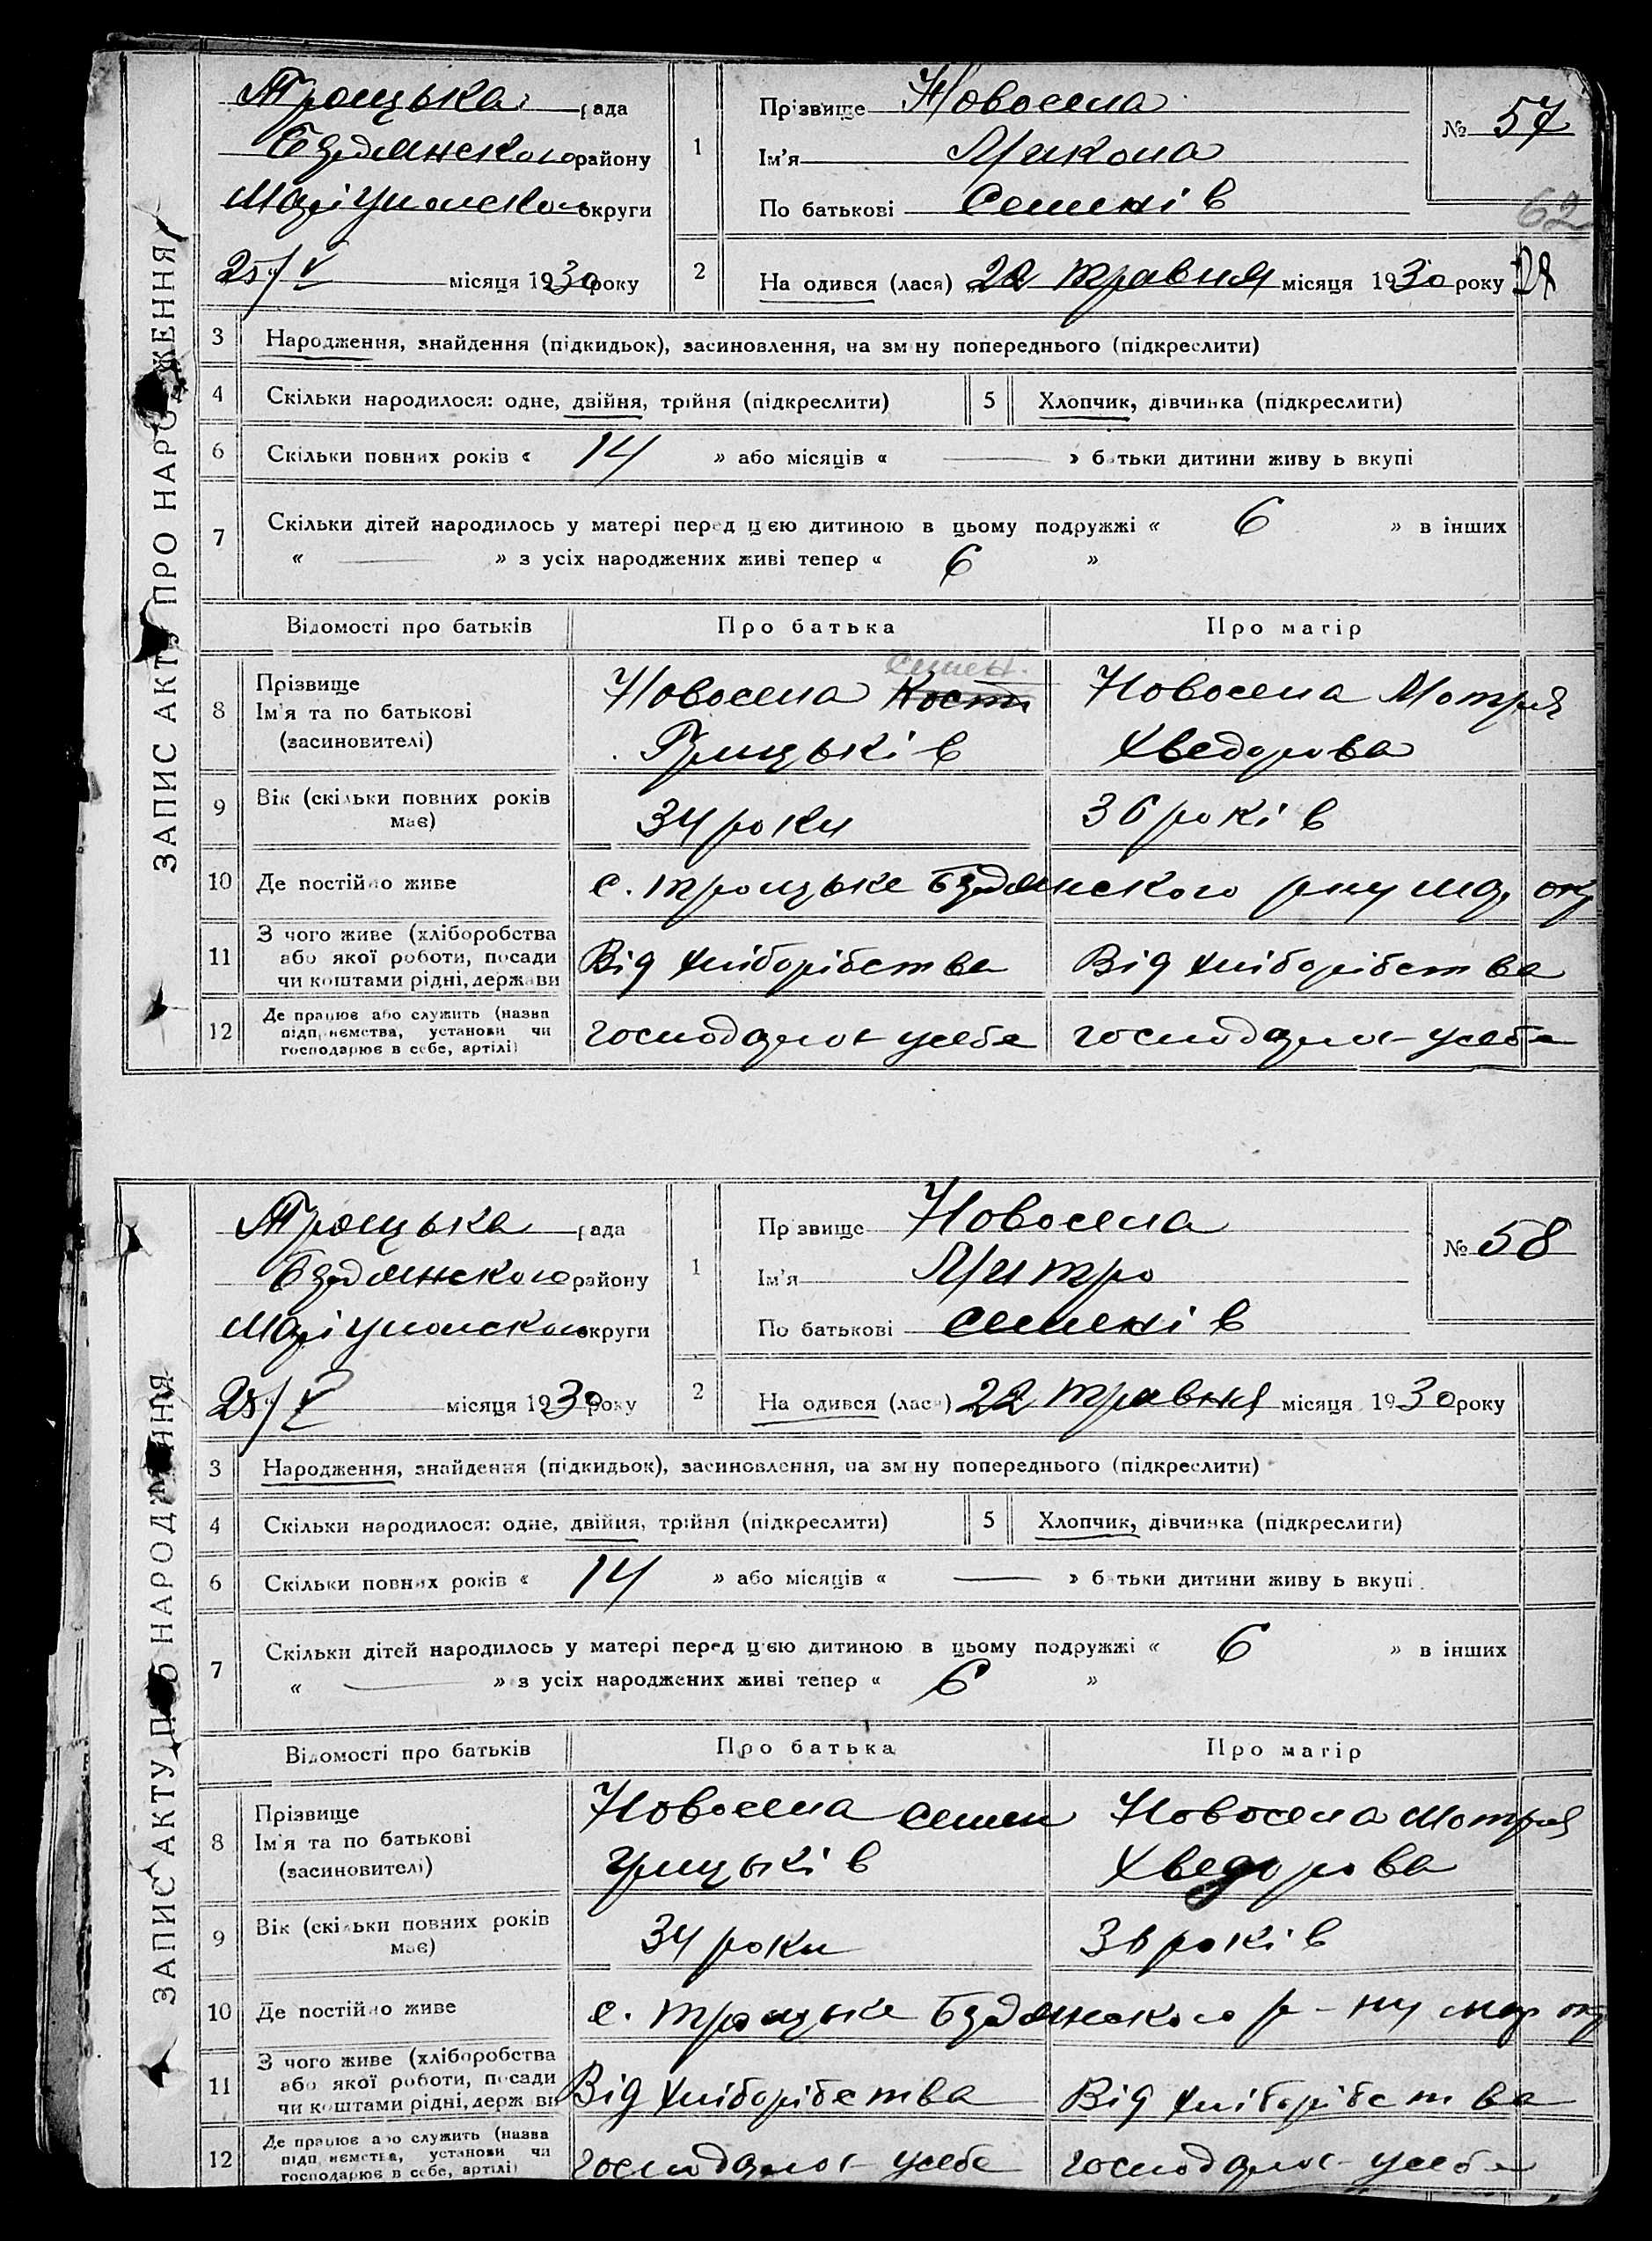 ЗАПИС АКТУ ПРО НАРОДЖЕННЯ
Троцька рада
району
округи
25/V місяця 1930 року
1
Прізвище Новосела
Ім'я Микола
По батькові Семенів
№ 57
62
2
На одився (лася) 22 травня місяця 1930 року
3 Народження, знайдення (підкидьок), засиновлення, на зм ну попереднього (підкреслити)
4 Скільки народилося: одне, двійня, трійня (підкреслити) 5 Хлопчик, дівчинка (підкреслити)
6 Скільки повних років « 14 » або місяців « — » батьки дитини живу ь вкупі
7 Скільки дітей народилось у матері перед цією дитиною в цьому подружжі « 6 » в інших
« — » з усіх народжених живі тепер « 6 »
Відомості про батьків Про батька Про матір
8 Прізвище
Ім'я та по батькові
(засиновителі)
Новосела Кость Семен
Грицьків
Новосела Мотря
Хведорова
9 Вік (скільки повних років
має)
34 роки 36 років
10 Де постійно живе с. Троцьке
11 З чого живе (хліборобства
або якої роботи, посади
чи коштами рідні, держави
Від хліборібства Від хліборібства
12 Де працює або служить (назва
підприємства, установи чи
господарює в себе, артілі)
усебе усебе
ЗАПИС АКТУ ПРО НАРОДЖЕННЯ
Троцька рада
району
округи
25/V місяця 1930 року
1
Пр звище Новосела
Ім'я Митро
По батькові Семенів
№ 58
2
На одився (лася) 22 травня місяця 1930 року
3 Народження, знайдення (підкидьок), засиновлення, на зм ну попереднього (підкреслити)
4 Скільки народилося: одне, двійня, трійня (підкреслити) 5 Хлопчик, дівчинка (підкреслити)
6 Скільки повних років « 14 » або місяців « — » батьки дитини живу ь вкупі
7 Скільки дітей народилось у матері перед цією дитиною в цьому подружжі « 6 » в інших
« — » з усіх народжених живі тепер « 6 »
Відомості про батьків Про батька Про матір
8 Прізвище
Ім'я та по батькові
(засиновителі)
Новосела Семен
Грицьків
Новосела Мотря
Хведорова
9 Вік (скільки повних років
має)
34 роки 36 років
10 Де постійно живе с. Троцьке
11 З чого живе (хліборобства
або якої роботи, посади
чи коштами рідні, держ ви
Від хліборібства Від хліборібства
12 Де працює або служить (назва
підприємства, установи чи
господарює в себе, артілі)
усебе усебе